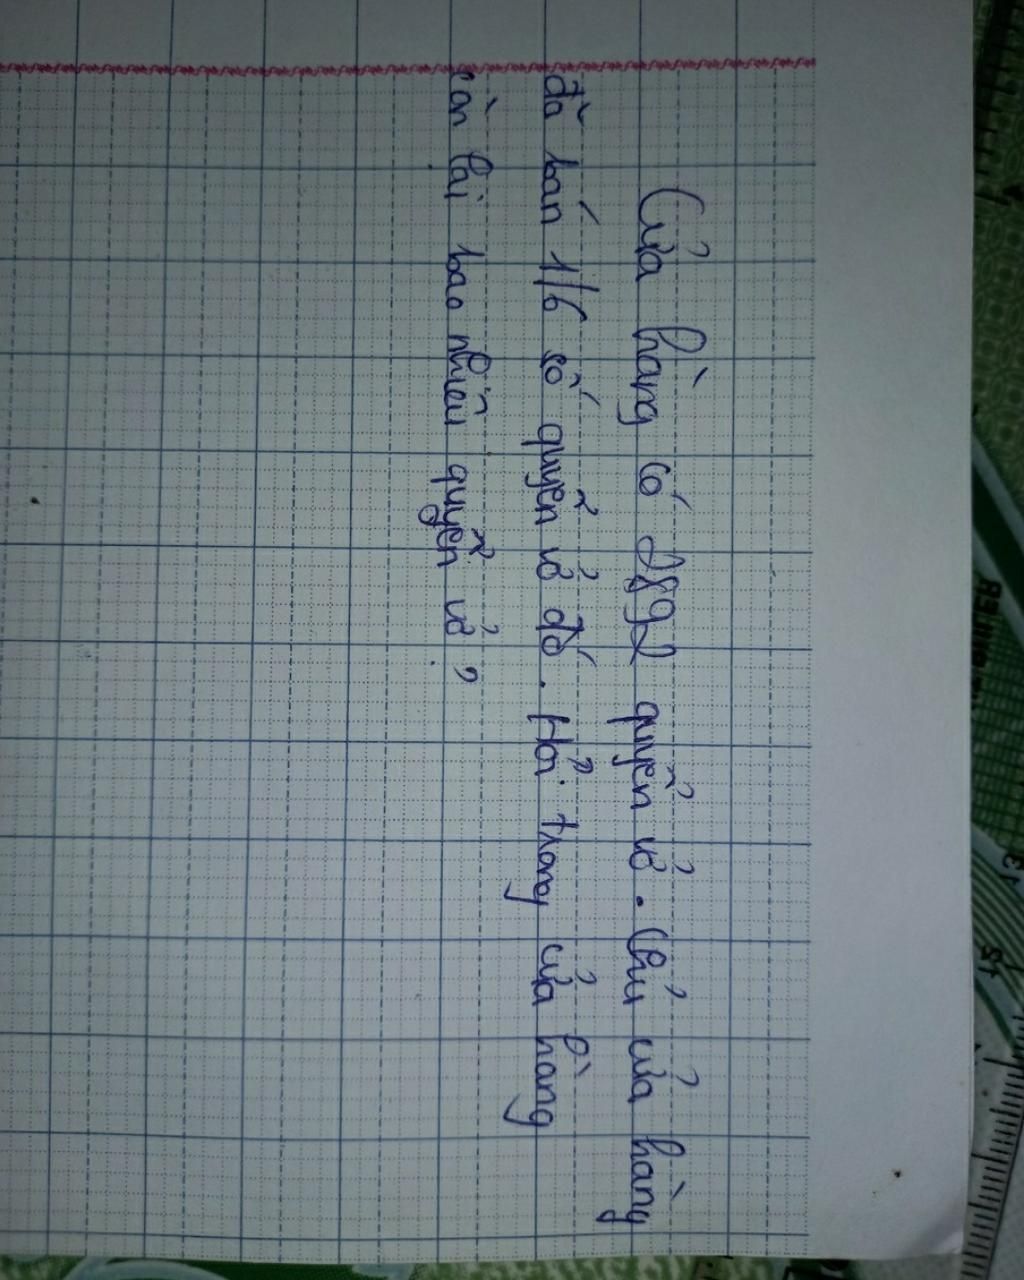 Cửa hàng có 2892 quyển vở. Chủ cửa hàng
đã bán 1/6 số quyển vở đó. Hỏi trong cửa hàng
còn lại bao nhiêu quyển vở?
13
15